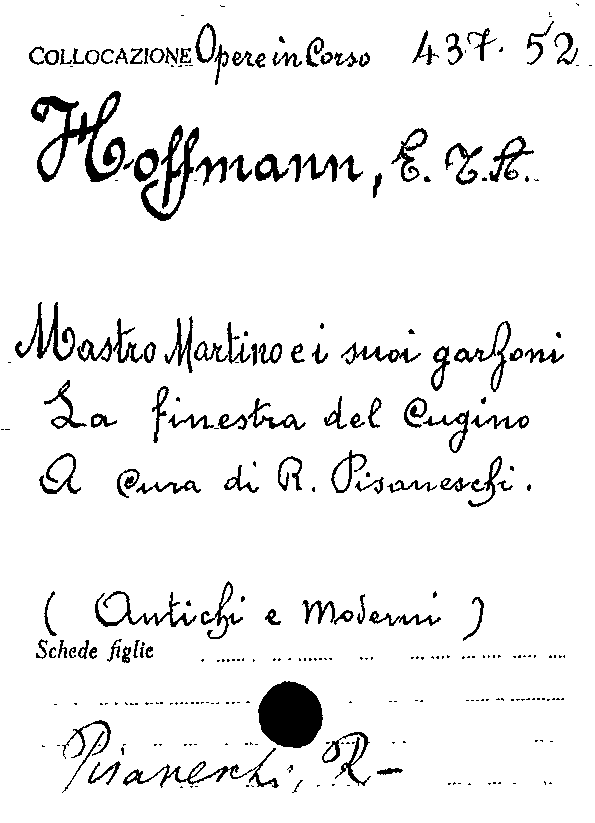 COLLOCAZIONE Opere in Corso 437. 52
Hoffmann, E. T. A.
Mastro Martino e i suoi garzoni
La finestra del Cugino
A cura di R. Pisaneschi.
( Antichi e Moderni )
Schede figlie
Pisaneschi, R-